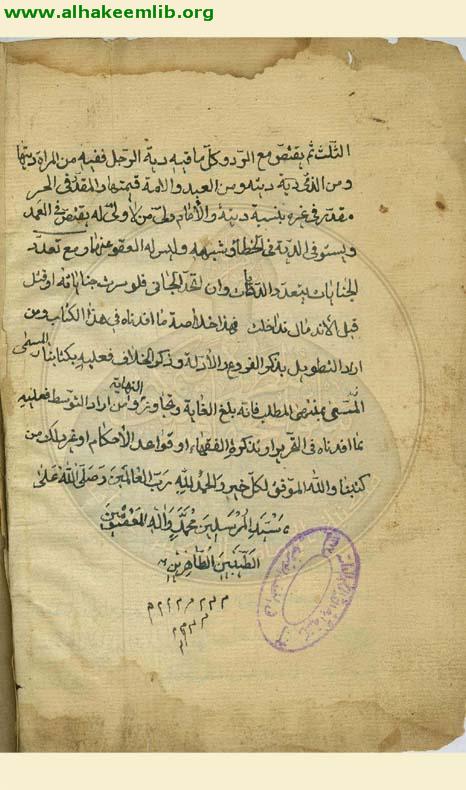 www.alhakeemlib.org
الثلث ثم يقتص مع الرد وكل ما فيه دية الرجل ففيه من المراة ديتها
ومن الذمى دية ديته ومن العبد والامة قيمتهما والمقدر فى الحر
مقدر فى غيره بنسبة ديته والامام ولى من لا ولى له يقتص فى العمد
ويستوفى الدية فى الخطا وشبهه وليس له العفو عنهما ومع تعدد
الجنايات يتعدد الديات وان اتحد الجانى فلو سرت جناياته او قتل
قبل الاندمال تداخلت فهذا خلاصة ما افدناه فى هذا الكتاب ومن
اراد التطويل بذكر الفروع والادلة وذكر الخلاف فعليه بكتابنا المسمى
المسمى بمنتهى المطلب فانه بلغ الغاية وتجاوز النهاية ومن اراد التوسط فعليه
بما افدناه فى التحرير او تذكرة الفقهاء او قواعد الاحكام او غير ذلك من
كتبنا والله الموفق لكل خير والحمد لله رب العالمين وصلى الله على
سيد المرسلين محمد واله المعصومين
الطيبين الطاهرين